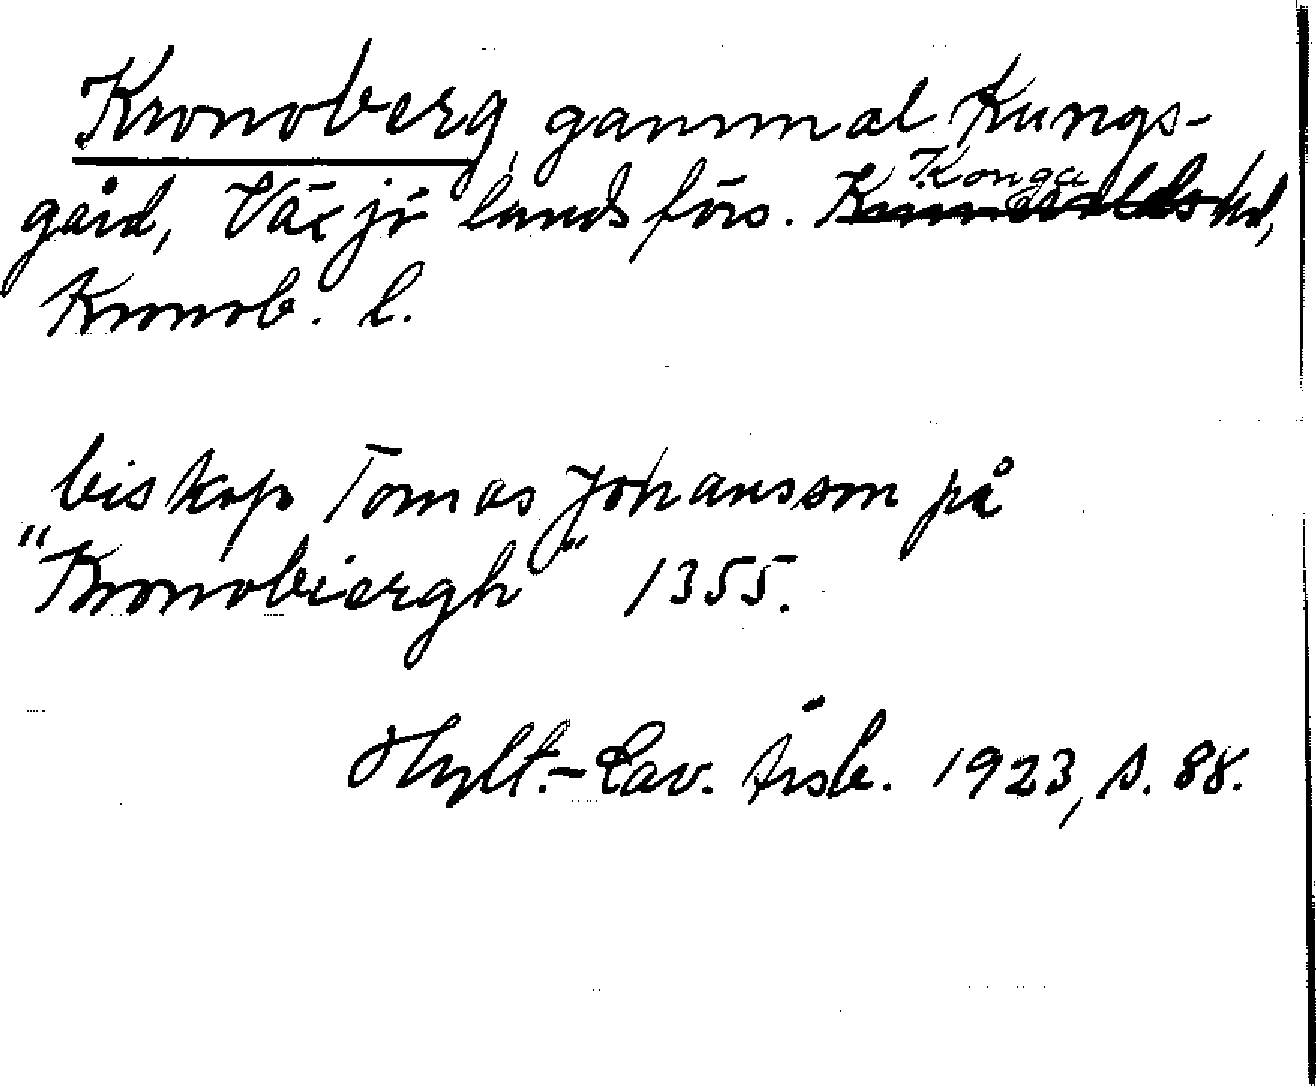 Kronoberg, gammal Kungs-
gård, Växjö landsförs. Konga hd,
Kronob. l.
biskop Tomas Johansson på
"Kronobiergh" 1355.
Hylt.-Cav. Årsb. 1923, s. 88.